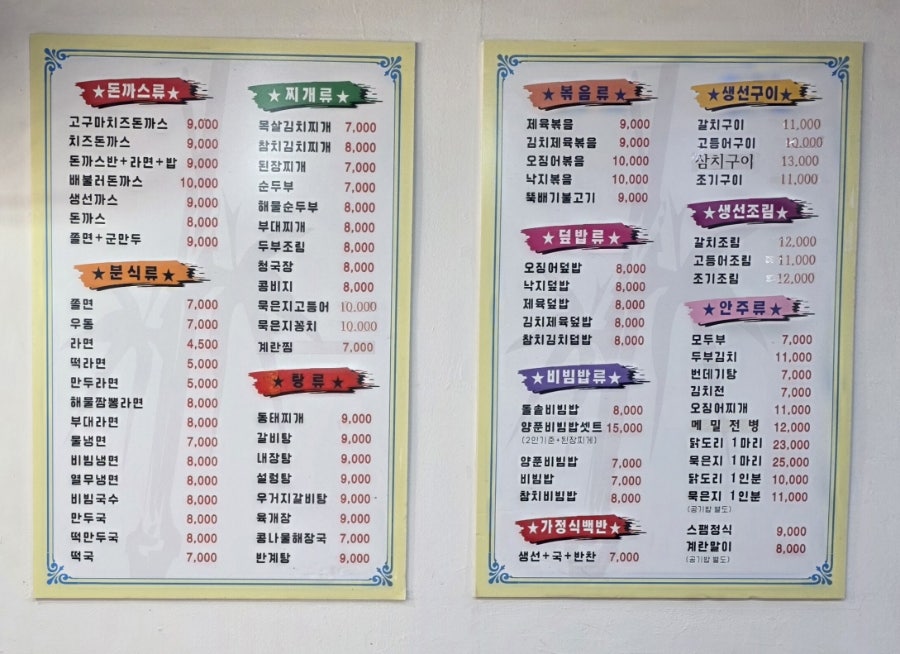 ★돈까스류★
고구마치즈돈까스 9,000
치즈돈까스 9,000
돈까스반+라면+밥 9,000
배불러돈까스 10,000
생선까스 9,000
돈까스 8,000
쫄면+군만두 9,000
★분식류★
쫄면 7,000
우동 7,000
라면 4,500
떡라면 5,000
만두라면 5,000
해물짬뽕라면 8,000
부대라면 8,000
물냉면 7,000
비빔냉면 8,000
열무냉면 8,000
비빔국수 8,000
만두국 8,000
떡만두국 8,000
떡국 7,000
★찌개류★
목살김치찌개 7,000
참치김치찌개 8,000
된장찌개 7,000
순두부 7,000
해물순두부 8,000
부대찌개 8,000
두부조림 8,000
청국장 8,000
콩비지 8,000
묵은지고등어 10.000
묵은지꽁치 10.000
계란찜 7,000
★탕류★
동태찌개 9,000
갈비탕 9,000
내장탕 9,000
설렁탕 9,000
우거지갈비탕 9,000
육개장 9,000
콩나물해장국 7,000
반계탕 9,000
★볶음류★
제육볶음 9,000
김치제육볶음 9,000
오징어볶음 10,000
낙지볶음 10,000
뚝배기불고기 9,000
★덮밥류★
오징어덮밥 8,000
낙지덮밥 8,000
제육덮밥 8,000
김치제육덮밥 8,000
참치김치덮밥 8,000
★비빔밥류★
돌솥비빔밥 8,000
양푼비빔밥셋트 15,000
(2인기준+된장찌게)
양푼비빔밥 7,000
비빔밥 7,000
참치비빔밥 8,000
★가정식백반★
생선+국+반찬 7,000
★생선구이★
갈치구이 11,000
고등어구이
삼치구이 13,000
조기구이 11,000
★생선조림★
갈치조림 12,000
고등어조림 11,000
조기조림 12,000
★안주류★
모두부 7,000
두부김치 11,000
번데기탕 7,000
김치전 7,000
오징어찌개 11,000
메밀전병 12,000
닭도리 1마리 23,000
묵은지 1마리 25,000
닭도리 1인분 10,000
묵은지 1인분 11,000
(공기밥 별도)
스팸정식 9,000
계란말이 8,000
(공기밥 별도)